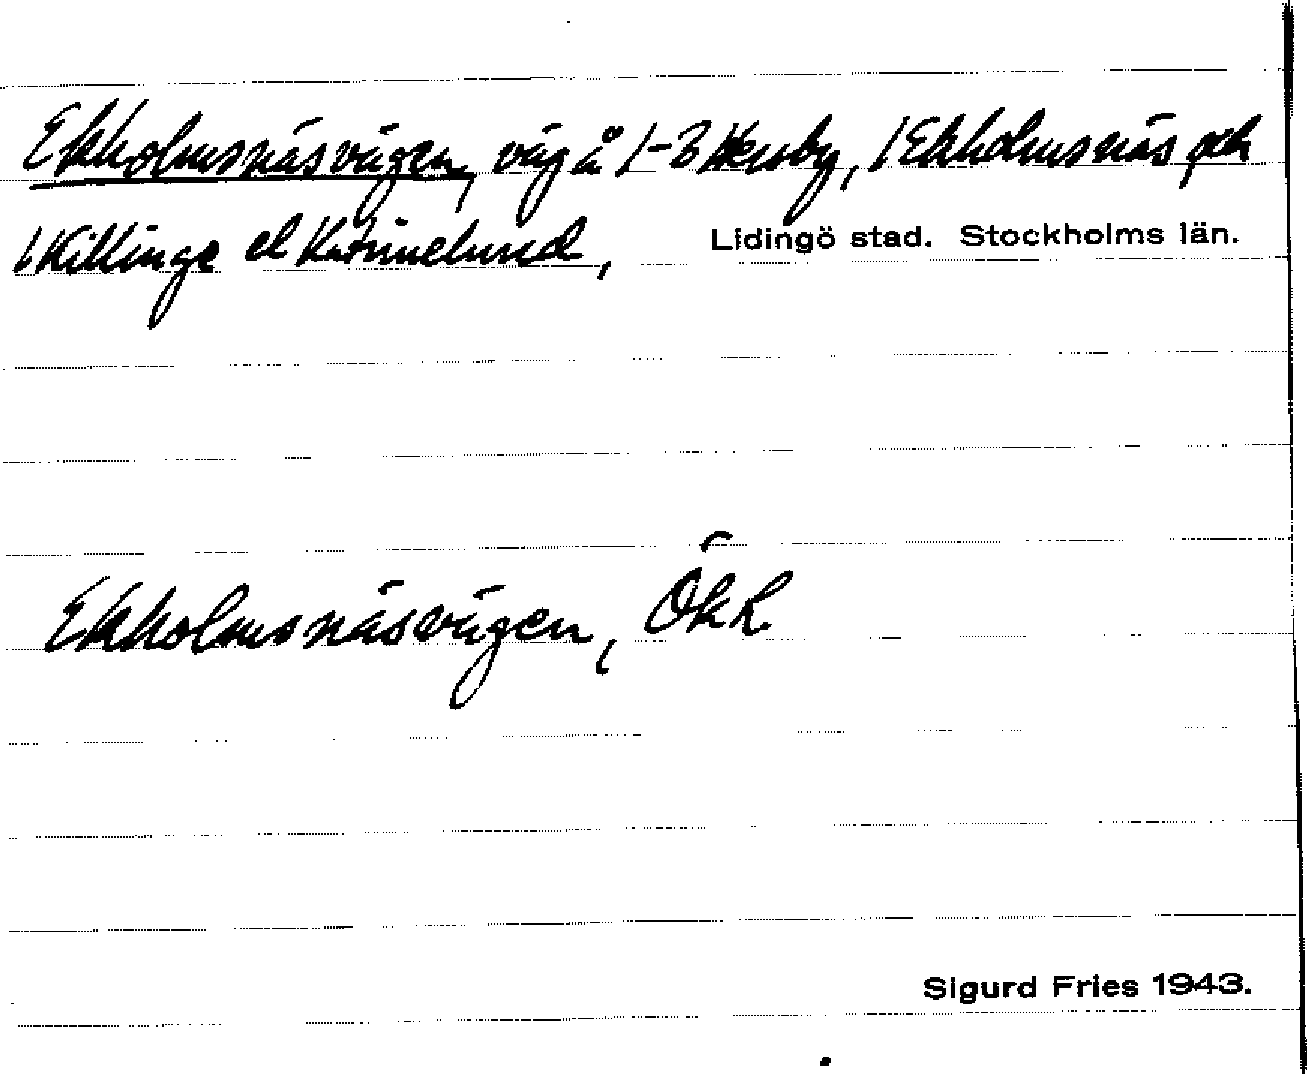 Ekholmsnäsvägen, väg å 1-3 Hersby, 1 Ekholmsnäs och
1 Killinge el Katrinelund, Lidingö stad. Stockholms län.
Ekholmsnäsvägen, ÖkL
Sigurd Fries 1943.